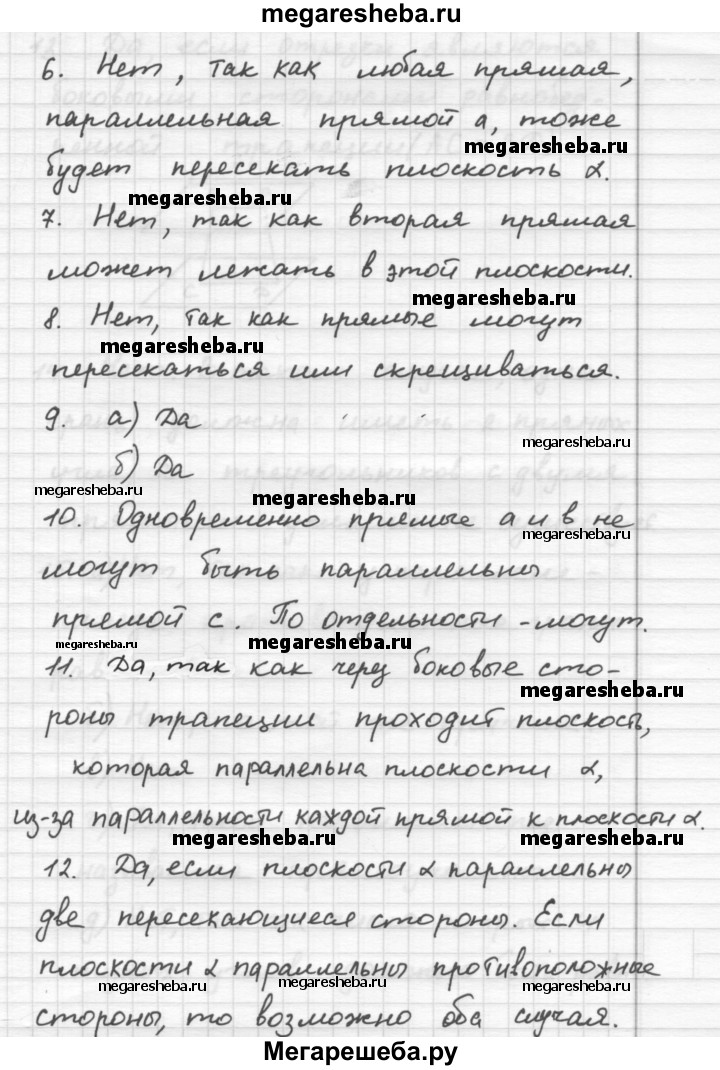 megaresheba.ru
6. Нет, так как любая прямая,
параллельная прямой а, тоже
megaresheba.ru
будет пересекать плоскость α.
megaresheba.ru
7. Нет, так как вторая прямая
может лежать в этой плоскости.
megaresheba.ru
8. Нет, так как прямые могут
megaresheba.ru
пересекаться или скрещиваться.
9. а) Да
megaresheba.ru
б) Да
megaresheba.ru
megaresheba.ru
10. Одновременно прямые а и в не
megaresheba.ru
могут быть параллельны
прямой с. По отдельности - могут.
megaresheba.ru
megaresheba.ru
11. Да, так как через боковые сто-
megaresheba.ru
роны трапеции проходит плоскость,
которая параллельна плоскости α,
из-за параллельности каждой прямой к плоскости α.
megaresheba.ru
megaresheba.ru
12. Да, если плоскости α параллельны
две пересекающиеся стороны. Если
плоскости α параллельны противоположные
megaresheba.ru
megaresheba.ru
стороны, то возможно оба случая.
Мегарешеба.ру